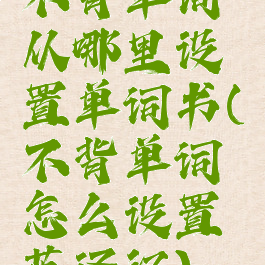 不背单词
从哪里设
置单词书(
不背单词
怎么设置
英译汉)